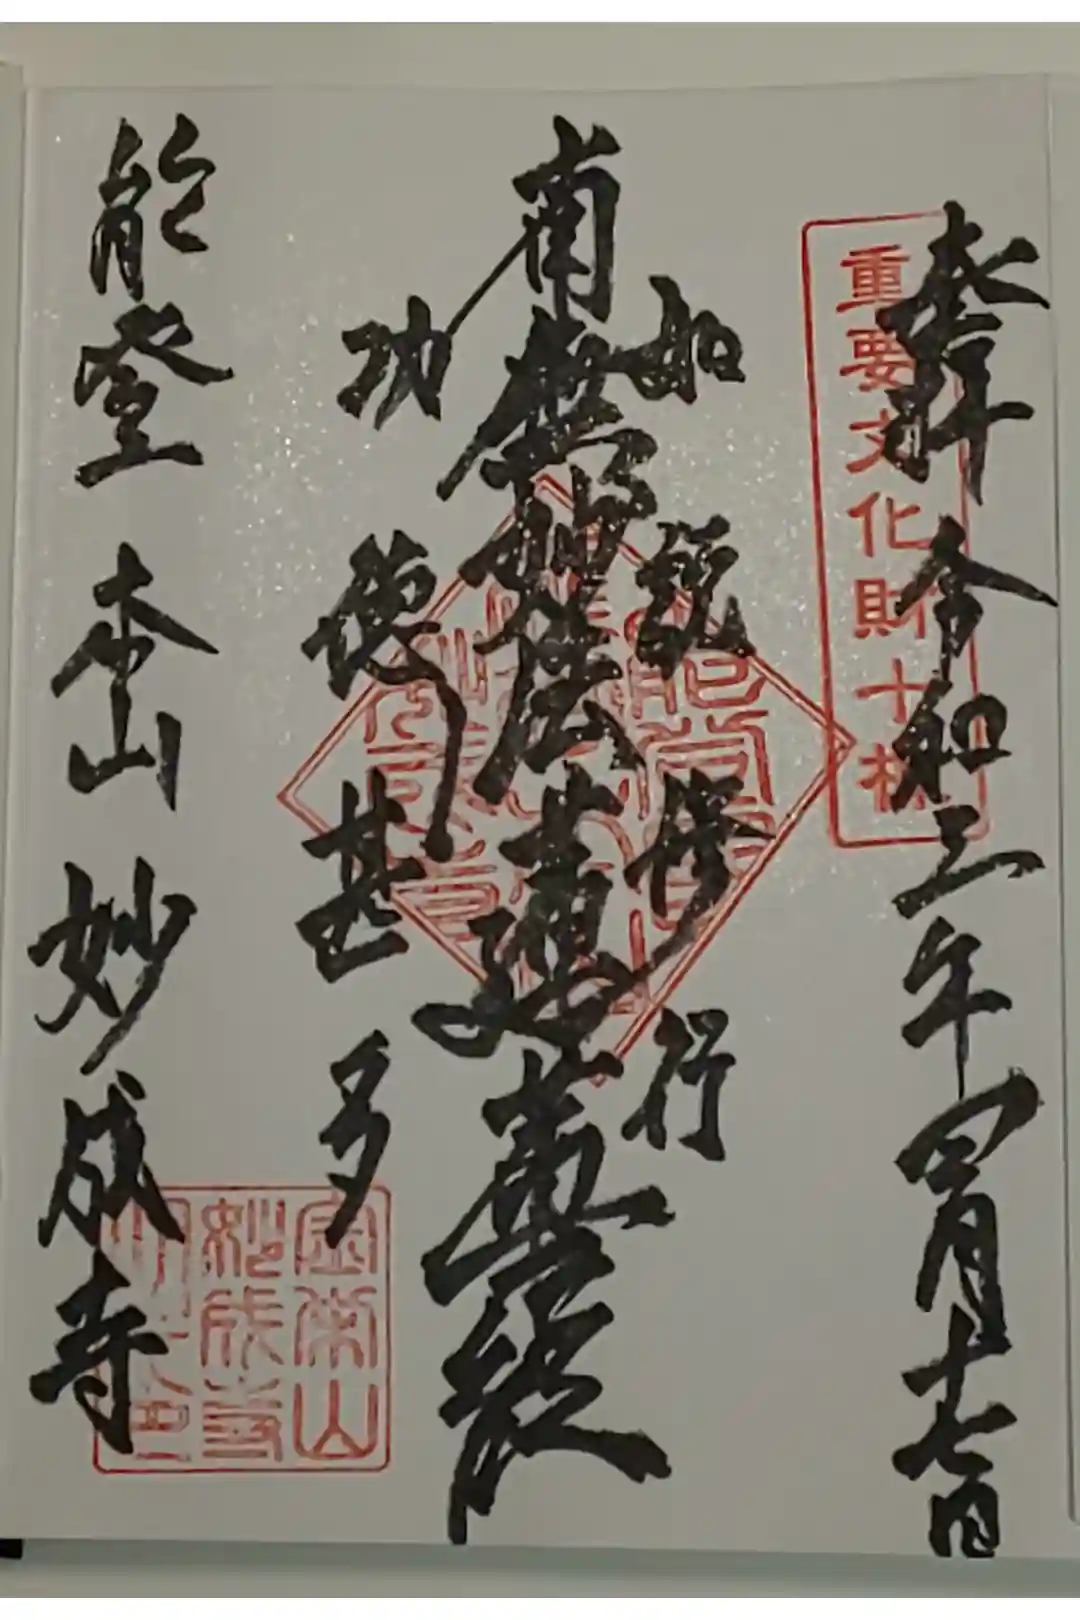 奉拝 令和三年四月十七日
重要文化財十棟
如説修行
南無妙法蓮華経
功徳甚多
能登 本山 妙成寺
金榮山
妙成寺